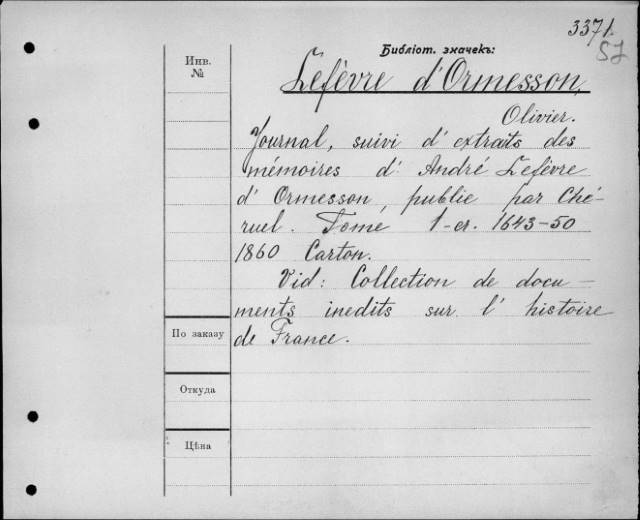 3371.
SJ
Библіот. значекъ:
Инв.
№
Lefèvre d'Ormesson,
Olivier.
Journal, suivi d'extraits des
mémoires d' André Lefèvre
d' Ormesson, publie par Ché-
ruel. Tomé 1-er. 1643-50
1860 Carton.
Vid: Collection de docu-
ments inedits sur l' histoire
de France.
По заказу
Откуда
Цѣна